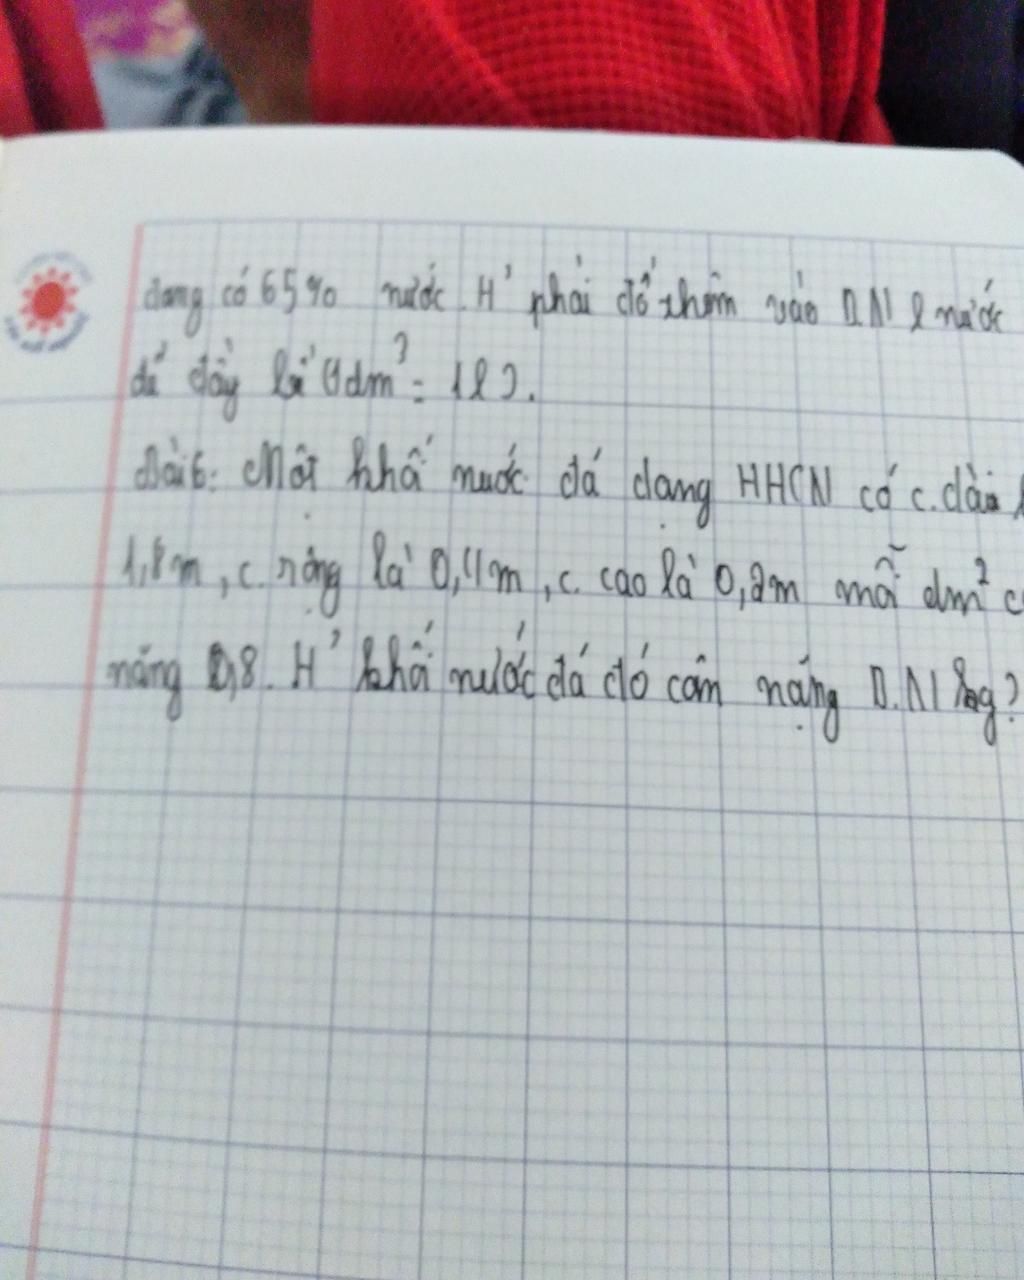 đang có 65% nước. H' phải đổ thêm vào B.N l nước
để đầy bể (1dm³ = 1l).
Bài 6: Một khối nước đá dạng HHCN có c.dài l
1,8m, c. rộng là 0,4m, c. cao là 0,2m mỗi dm² c
nặng 0,8. H' khối nước đá đó cân nặng B.N kg?